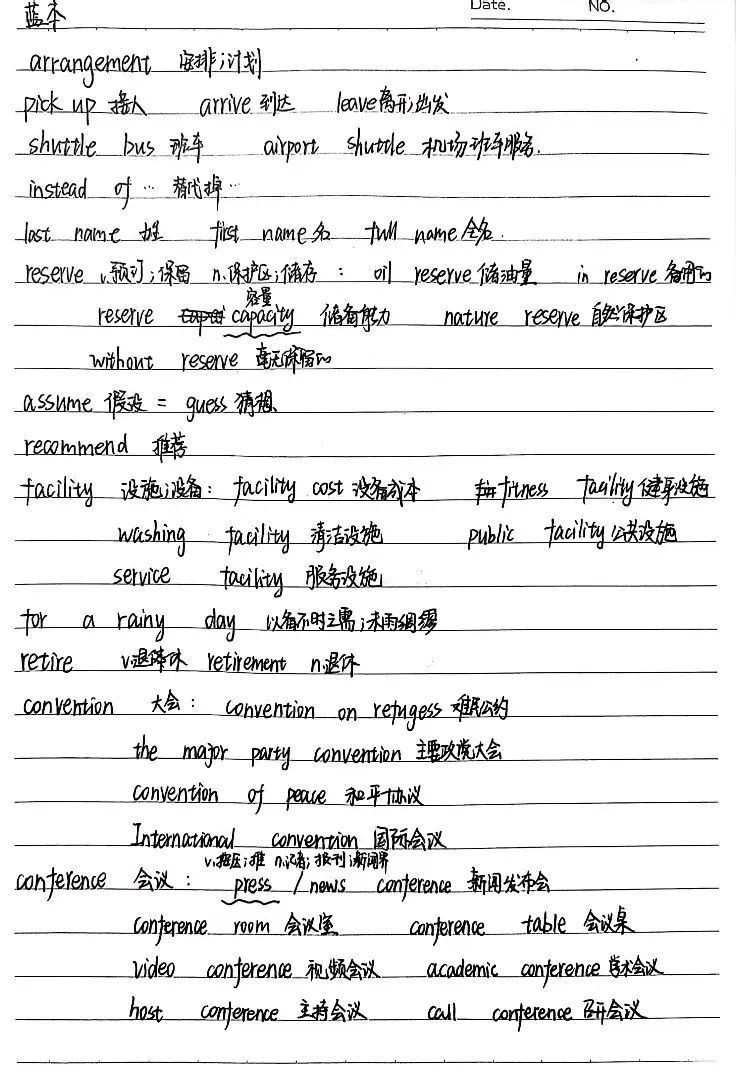 Date. NO.
蓝本
arrangement 安排;计划
pick up 接人 arrive 到达 leave 离开;出发
shuttle bus 班车 airport shuttle 机场班车服务.
instead of … 替代掉…
last name 姓 first name 名 full name 全名.
reserve v.预订;保留 n.保护区;储存: oil reserve 储油量 in reserve 备用的
容量
reserve capacity 储备能力 nature reserve 自然保护区
without reserve 毫无保留的
assume 假设 = guess 猜想
recommend 推荐
facility 设施;设备: facility cost 设备成本 fitness facility 健身设施
washing facility 清洁设施 public facility 公共设施
service facility 服务设施
for a rainy day 以备不时之需;未雨绸缪
retire v.退休 retirement n.退休
convention 大会: convention on refugess 难民公约
the major party convention 主要政党大会
convention of peace 和平协议
International convention 国际会议
v.按压;推 n.记者;报刊;新闻界
conference 会议: press / news conference 新闻发布会
conference room 会议室 conference table 会议桌
video conference 视频会议 academic conference 学术会议
host conference 主持会议 call conference 召开会议